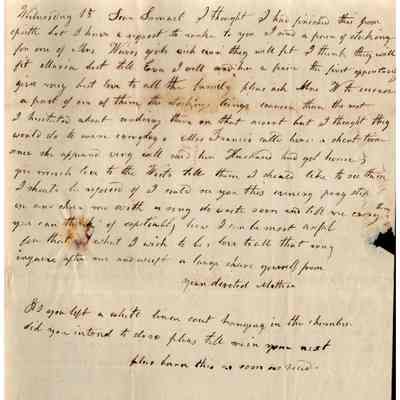 Wednesday 18 Dear Samuel I thought I had finished this poor
epistle but I have a request to make to you I send a pair of stockings
for one of Mrs W girls which ever they will fit I think they will
fit Maria best tell Cora I will send her a pair the first opportunity
give very best love to all the family please ask Mrs W to
a part of one of them the stocking being coarser than the rest
I hesitated about sending them on that account but I thought they
would do to wear everyday Mrs Francis here a short time
since she appeared very well and her Husband had got home
give much love to the tell them I should like to see them
I should be rejoiced if I could see you this evening pray step
in and cheer me with a song do write soon and tell me every thing
you can think of respecting how I can be most useful
for that is what I wish to be love to all that may
inquire after me and accept a large share yourself from
your devoted Mother
PS you left a white linen coat hanging in the chamber
did you intend to do so please tell me in your next
please burn this as soon as read